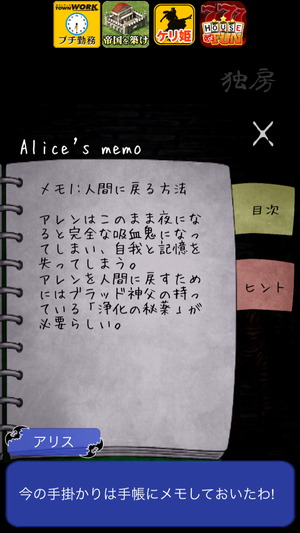 TOWNWORK
プチ勤務
帝国を築け
ケリ姫
777
HOUSE
OF
FUN
独房
Alice's memo
メモ1:人間に戻る方法
アレンはこのまま夜にな
ると完全な吸血鬼になっ
てしまい、自我と記憶を
失ってしまう。
アレンを人間に戻すため
にはブラッド神父の持っ
ている「浄化の秘薬」が
必要らしい。
目次
ヒント
アリス
今の手掛かりは手帳にメモしておいたわ!